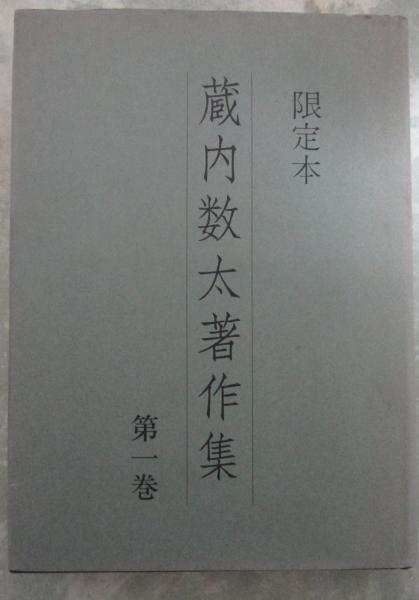 限定本
蔵内数太著作集
第一巻